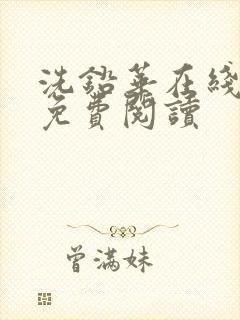 洗鉛華在綫
免費閱讀
曾滿妹